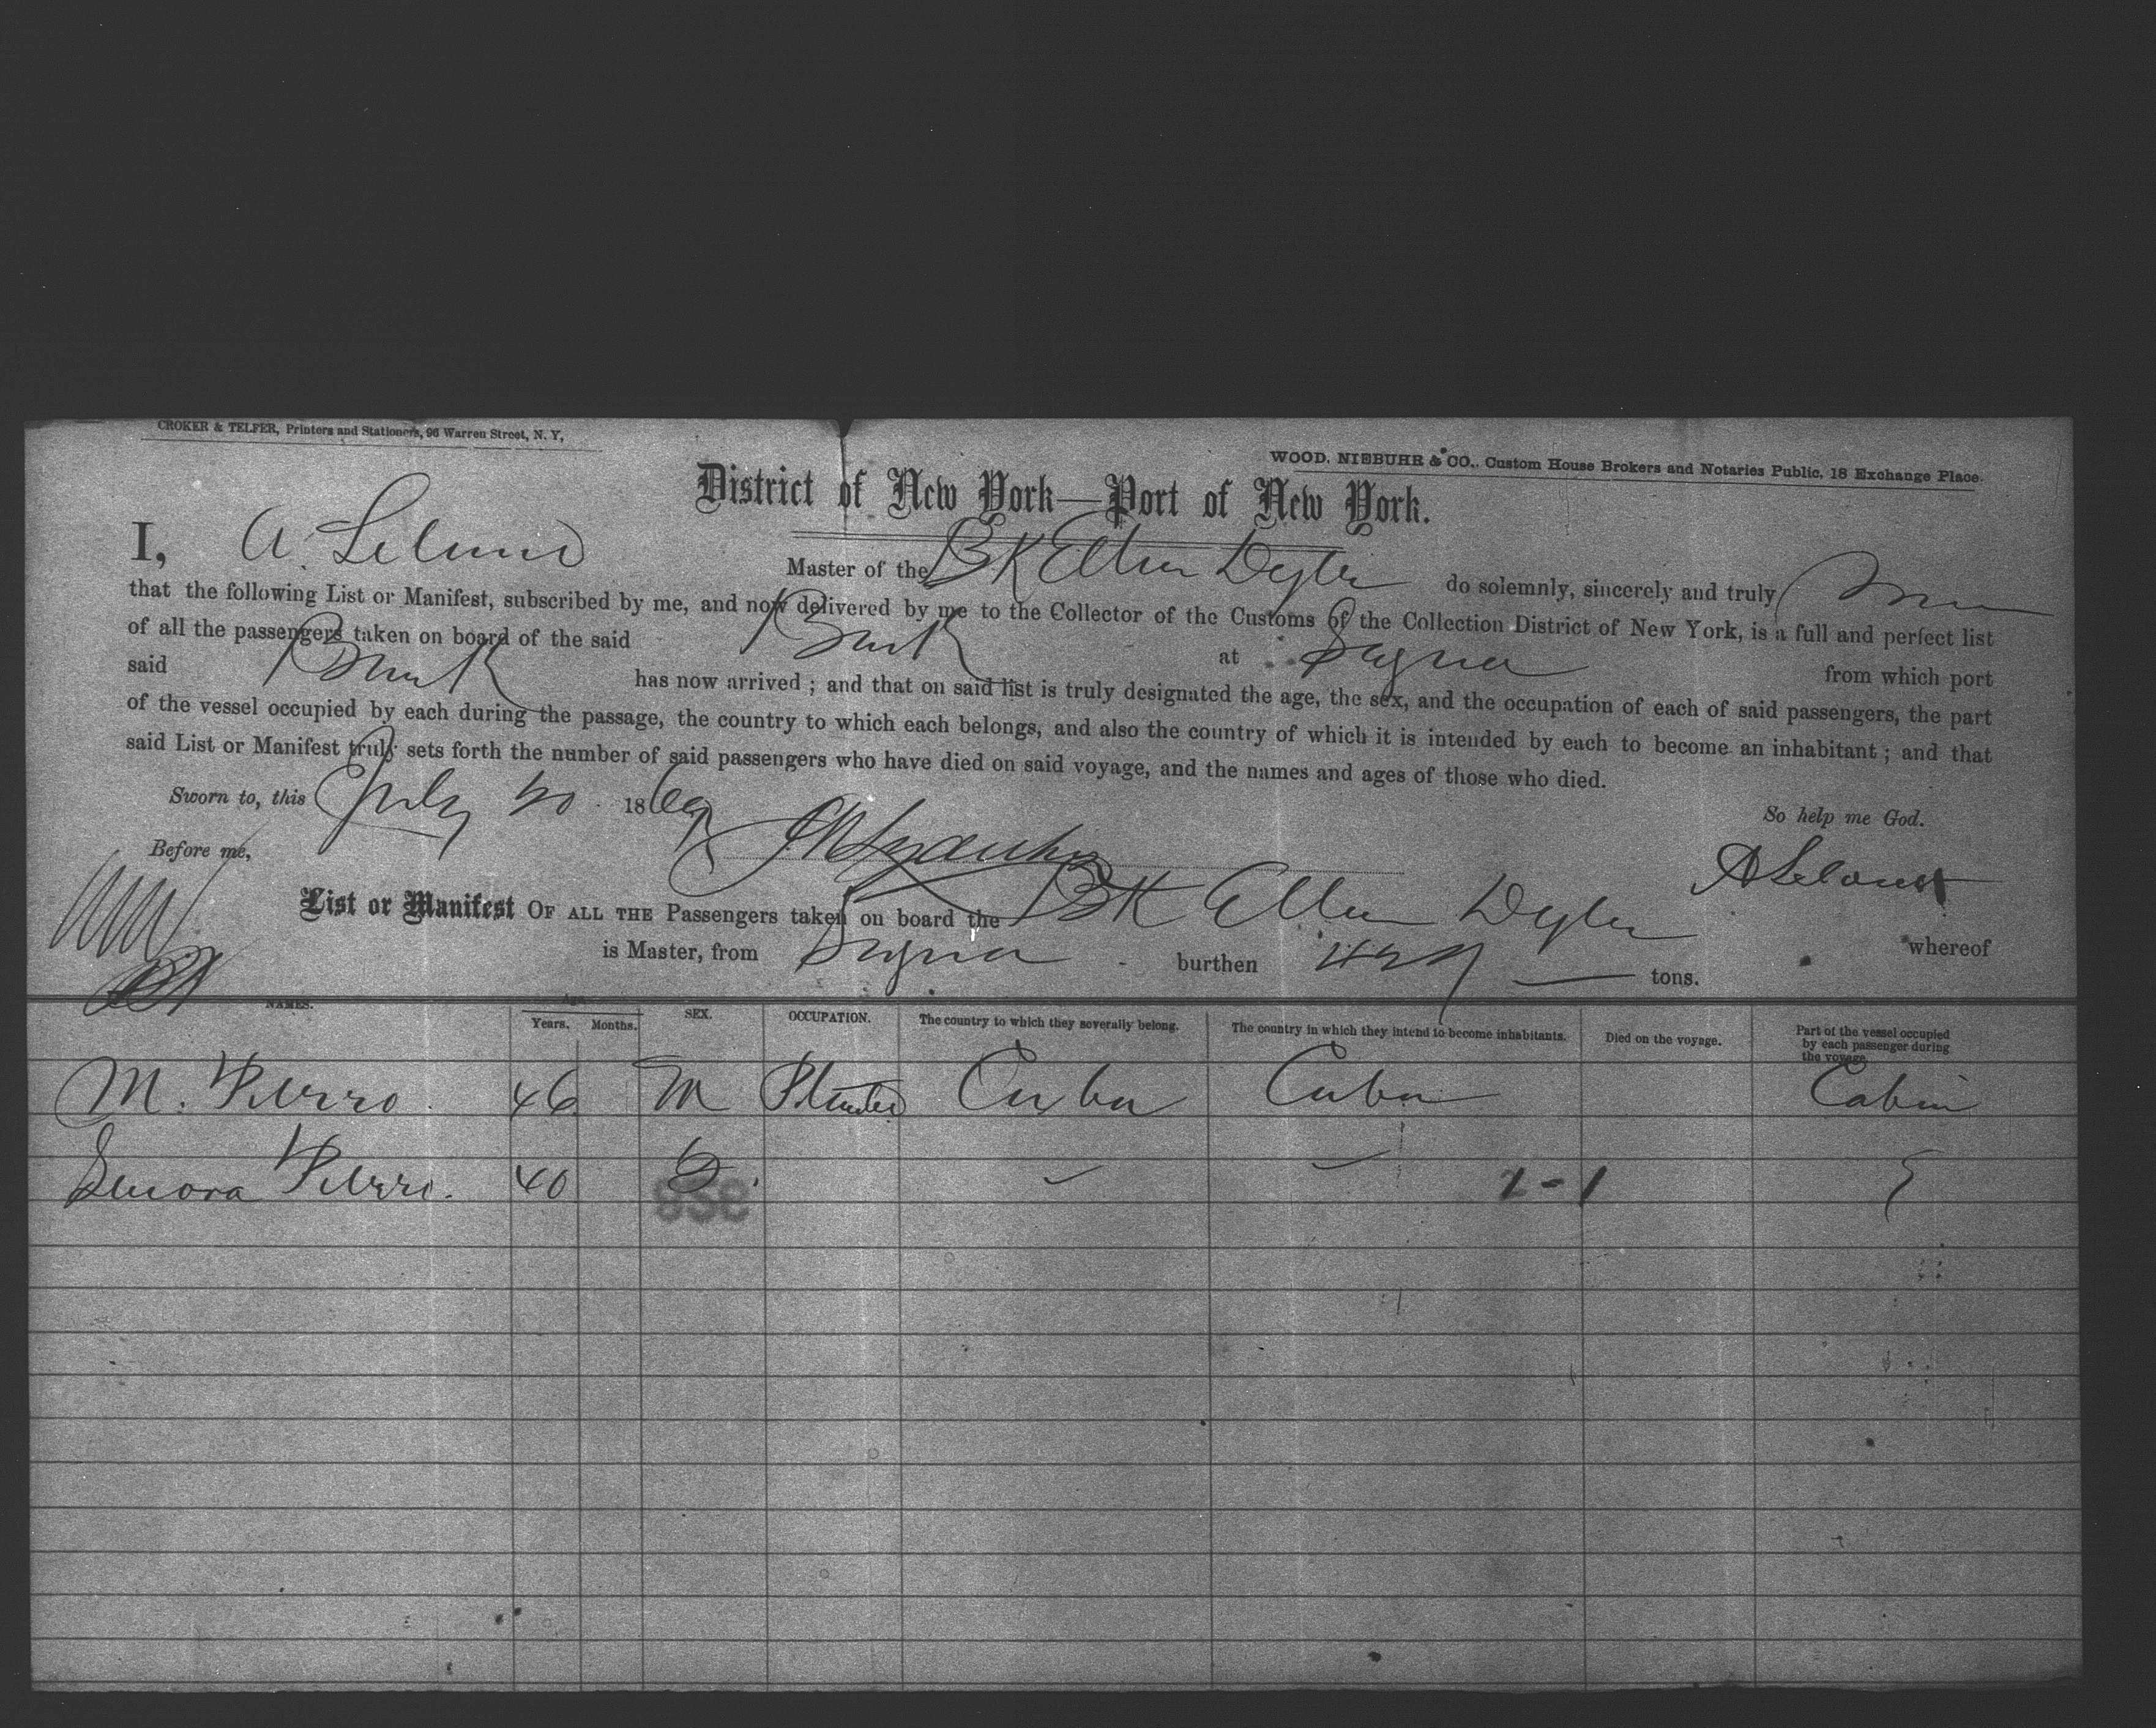 CROKER & TELFER, Printers and Stationers, 96 Warren Street, N. Y,
WOOD, NIEBUHR & CO., Custom House Brokers and Notaries Public, 18 Exchange Place.
District of New York—Port of New York.
I, A. Master of the Bk Ellen Dyer do solemnly, sincerely and truly
that the following List or Manifest, subscribed by me, and now delivered by me to the Collector of the Customs of the Collection District of New York, is a full and perfect list
of all the passengers taken on board of the said Bark at Sagua from which port
said Bark has now arrived ; and that on said list is truly designated the age, the sex, and the occupation of each of said passengers, the part
of the vessel occupied by each during the passage, the country to which each belongs, and also the country of which it is intended by each to become an inhabitant ; and that
said List or Manifest truly sets forth the number of said passengers who have died on said voyage, and the names and ages of those who died.
Sworn to, this July 20 1869 So help me God.
Before me,
List or Manifest OF ALL THE Passengers taken on board the Bk Ellen Dyer whereof
is Master, from Sagua burthen tons.
NAMES. Age Years. Months. SEX. OCCUPATION. The country to which they severally belong. The country in which they intend to become inhabitants. Died on the voyage. Part of the vessel occupied by each passenger during the voyage.
M. 46 M Planter Cuba Cuba Cabin
Senora 40